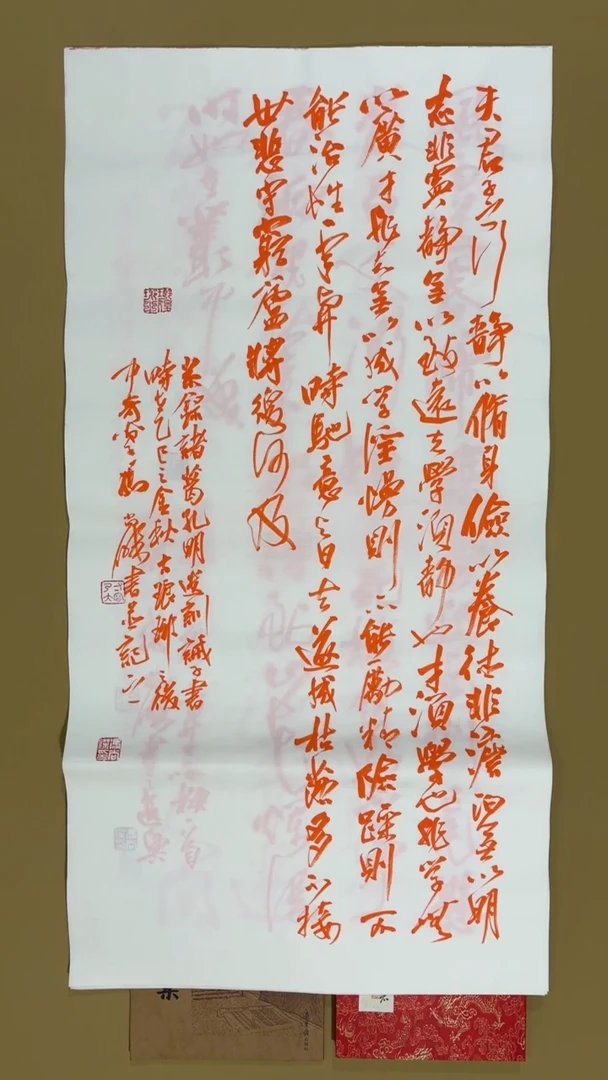 夫君子之行靜以脩身儉以養德非澹泊無以明
志非寧靜無以致遠夫學須靜也才須學也非學無
以廣才非志無以成學淫慢則不能勵精險躁則不
能治性年與時馳意與日去遂成枯落多不接
世悲守窮廬將復何及
錄諸葛孔明遺訓誡子書
時在乙巳之金秋古
中書並記